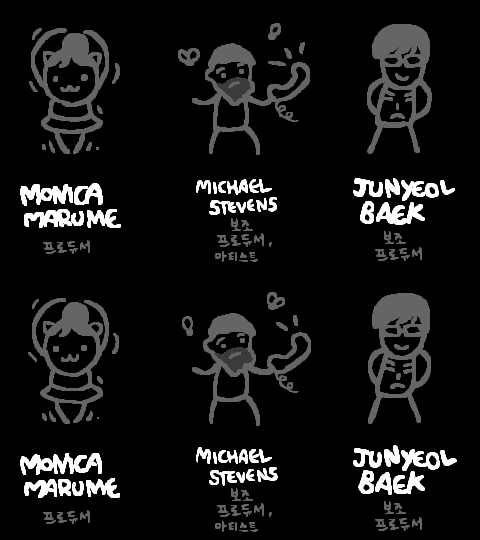 MONICA
MARUME
프로듀서
MICHAEL
STEVENS
보조
프로듀서,
마티스트
JUNYEOL
BAEK
보조
프로듀서
MONICA
MARUME
프로듀서
MICHAEL
STEVENS
보조
프로듀서,
마티스트
JUNYEOL
BAEK
보조
프로듀서